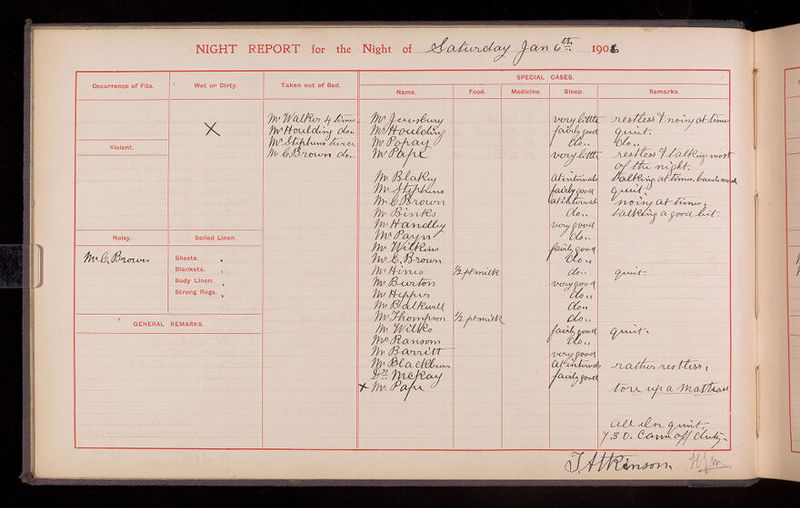 NIGHT REPORT for the Night of Saturday Jan 6th 1906
SPECIAL CASES.
Occurrence of Fits. Wet or Dirty. Taken out of Bed. Name. Food. Medicine. Sleep. Remarks.
X
Mr Walker 4 times
Mr Houlding do..
Mr Stephens twice
Mr C. Brown do..
Violent.
Noisy. Soiled Linen.
Mr C. Brown
Sheets.
Blankets.
Body Linen.
Strong Rugs.
GENERAL REMARKS.
Mr Jewsbury very little restless & noisy at times
Mr Houlding fairly good quiet.
Mr Popay do.. do..
Mr Pape very little restless & talking most
of the night.
Mr Blakey at intervals talking at times.
Mr Stephens fairly good quiet.
Mr C Brown at intervals noisy at times,
Mr Binks do.. talking a good bit.
Mr Handley very good
Mr Payn do..
Mr Wilkins fairly good
Mr C. Brown do..
Mr Hines ½ pt milk do.. quiet.
Mr Burton very good
Mr Hipper do..
Mr do..
Mr Thompson ½ pt milk do..
Mr Wilks fairly good quiet.
Mr Ransom do..
Mr Barritt very good
Mr Blackburn at intervals rather restless,
Dr McKay fairly good
x Mr Pape tore up a mattress
All else quiet
7.30. Came off duty.
T Atkinson